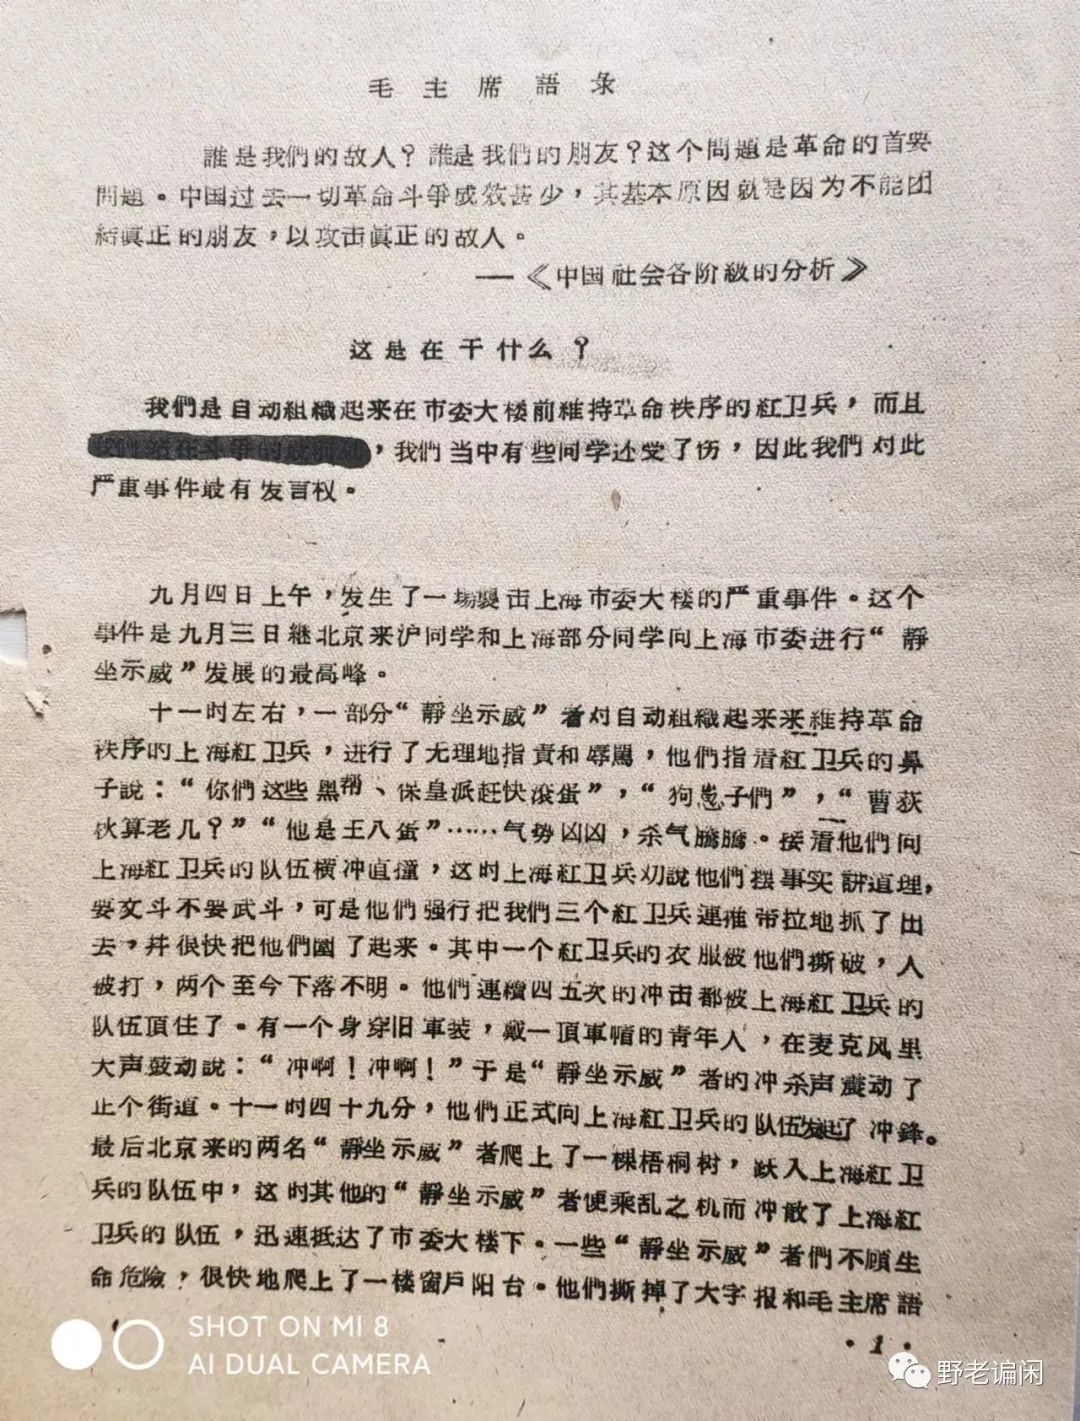 毛主席語录
誰是我們的故人？誰是我們的朋友？这个問題是革命的首要
問題。中国过去一切革命斗爭成效甚少，其基本原因就是因为不能团
結眞正的朋友，以攻击眞正的故人。
——《中国社会各阶級的分析》
这是在干什么？
我們是自动組織起来在市委大楼前維持革命秩序的紅卫兵，而且
，我們当中有些同学还受了伤，因此我們对此
严重事件最有发言权。
九月四日上午，发生了一場襲击上海市委大楼的严重事件。这个
事件是九月三日継北京来沪同学和上海部分同学向上海市委进行“靜
坐示威”发展的最高峰。
十一时左右，一部分“靜坐示威”者对自动組織起来来維持革命
秩序的上海紅卫兵，进行了无理地指責和辱駡，他們指着紅卫兵的鼻
子說：“你們这些黑帮、保皇派赶快滾蛋”，“狗崽子們”，“曹荻
秋算老几？”“他是王八蛋”……气势凶凶，杀气騰騰。接着他們向
上海紅卫兵的队伍横冲直撞，这时上海紅卫兵劝說他們摆事实講道理，
要文斗不要武斗，可是他們强行把我們三个紅卫兵連推带拉地抓了出
去，幷很快把他們圍了起来。其中一个紅卫兵的衣服被他們撕破，人
被打，两个至今下落不明。他們連續四五次的冲击都被上海紅卫兵的
队伍頂住了。有一个身穿旧軍装，戴一頂軍帽的青年人，在麦克风里
大声鼓动說：“冲啊！冲啊！”于是“靜坐示威”者的冲杀声震动了
正个街道。十一时四十九分，他們正式向上海紅卫兵的队伍发起了冲鋒。
最后北京来的两名“靜坐示威”者爬上了一棵梧桐树，跃入上海紅卫
兵的队伍中，这时其他的“靜坐示威”者便乘乱之机而冲散了上海紅
卫兵的队伍，迅速抵达了市委大楼下。一些“靜坐示威”者們不顧生
命危險，很快地爬上了一楼窗戶阳台。他們撕掉了大字报和毛主席語
·1·
SHOT ON MI 8
AI DUAL CAMERA
野老谝闲